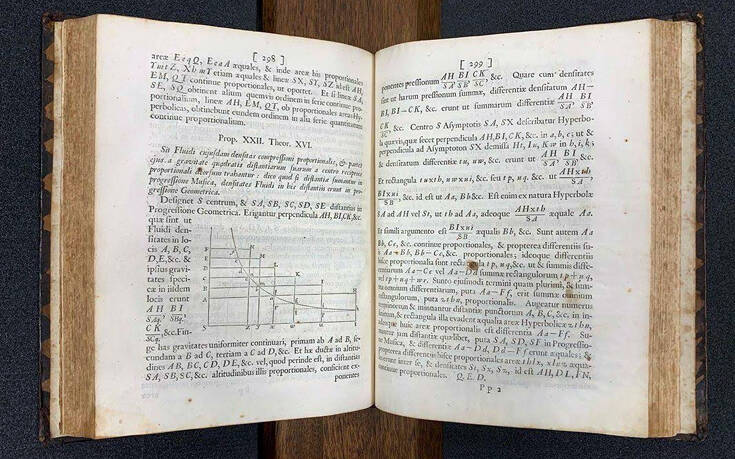 [ 298 ]
areæ EeqQ, EeaA æquales, & inde areæ his proportionales
YmtZ, XbmY etiam æquales & lineæ SX, ST, SZ id est AH,
EM, QT continue proportionales, ut oportet. Et si lineæ SA,
SE, SQ obtinent alium quemvis ordinem in serie continue pro-
portionalium, lineæ AH, EM, QT, ob proportionales areas Hy-
perbolicas, obtinebunt eundem ordinem in alia serie quantitatum
continue proportionalium.
Prop. XXII. Theor. XVI.
Sit Fluidi cujusdam densitas compressioni proportionalis, & partes
ejus a gravitate quadratis distantiarum suarum a centro reciproce
proportionali deorsum trahantur: dico quod si distantiæ sumantur in
progressione Musica, densitates Fluidi in his distantiis erunt in pro-
gressione Geometrica.
Designet S centrum, & SA, SB, SC, SD, SE distantias in
Progressione Geometrica. Erigantur perpendicula AH, BI, CK, &c.
quæ sint ut
Fluidi den-
sitates in lo-
cis A, B, C,
D, E, &c. &
ipsius gravi-
tates speci-
cæ in iisdem
locis erunt
AH BI
SAq.' SBq.'
CK
SCq.' &c. Fin-
ge has gravitates uniformiter continuari, primam ab A ad B, se-
cundam a B ad C, tertiam a C ad D, &c. Et hæ ductæ in altitu-
dines AB, BC, CD, DE, &c. vel, quod perinde est, in distantias
SA, SB, SC, &c. altitudinibus illis proportionales, conficient ex-
ponentes
[ 299 ]
ponentes pressionum AH/SA, BI/SB, CK/SC, &c. Quare cum densitates
sint ut harum pressionum summæ, differentiæ densitatum AH-
BI, BI-CK, &c. erunt ut summarum differentiæ AH/SA, BI/SB,
CK/SC, &c. Centro S Asymptotis SA, SX describatur Hyperbo-
la quævis, quæ secet perpendicula AH, BI, CK, &c. in a, b, c; ut &
perpendicula ad Asymptoton SX demissa Ht, Iu, Kw in h, i, k;
& densitatum differentiæ tu, uw, &c. erunt ut AH/SA, BI/SB, &c.
Et rectangula tu×th, uw×ui, &c. seu tp, uq, &c. ut AH×th/SA,
BI×ui/SB, &c. id est ut Aa, Bb &c. Est enim ex natura Hyperbolæ
SA ad AH vel St, ut th ad Aa, adeoque AH×th/SA æquale Aa.
Et simili argumento est BI×ui/SB æqualis Bb, &c. Sunt autem Aa
Bb, Cc, &c. continue proportionales, & propterea differentiis su-
is Aa-Bb, Bb-Cc, &c. proportionales; ideoque differentiis
hisce proportionalia sunt rectangula tp, uq, &c. ut & summis diffe-
rentiarum Aa-Cc vel Aa-Dd summæ rectangulorum tp+uq,
vel tp+uq+wr. Sunto ejusmodi termini quam plurimi, & sum-
ma omnium differentiarum, puta Aa-Ff, erit summæ omnium
rectangulorum, puta zthn, proportionalis. Augeatur numerus
terminorum & minuantur distantiæ punctorum A, B, C, &c. in in-
finitum, & rectangula illa evadent æqualia areæ Hyperbolicæ zthn,
adeoque huic areæ proportionalis est differentia Aa-Ff. Su-
mantur jam distantiæ quælibet, puta SA, SD, SF in Progressio-
ne Musica, & differentiæ Aa-Dd, Dd-Ff erunt æquales; &
propterea differentiis hisce proportionales areæ thlx, xlnz æqua-
les erunt inter se, & densitates St, Sx, Sz, id est AH, DL, FN,
continue proportionales. Q. E. D.
Pp 2